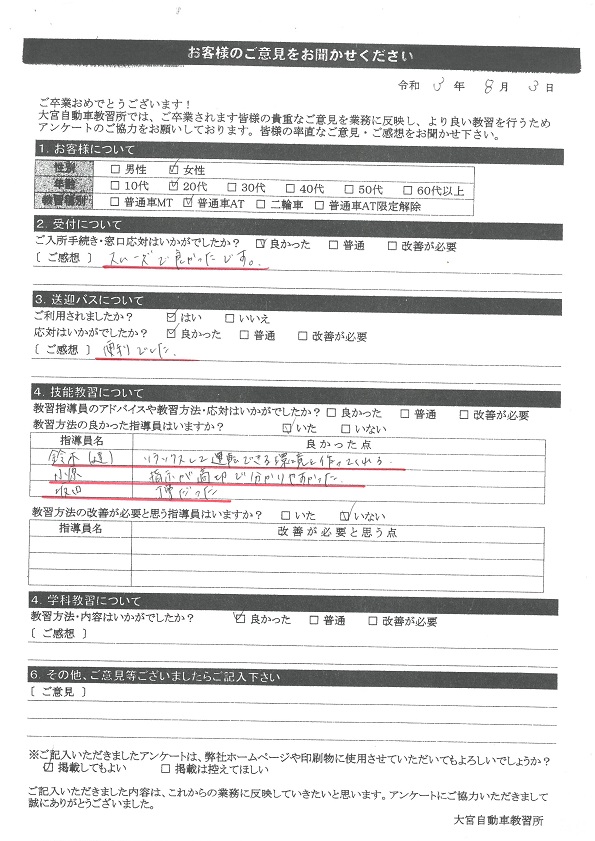 お客様のご意見をお聞かせください
令和 3 年 8 月 3 日
ご卒業おめでとうございます！
大宮自動車教習所では、ご卒業されます皆様の貴重なご意見を業務に反映し、より良い教習を行うため
アンケートのご協力をお願いしております。皆様の率直なご意見・ご感想をお聞かせ下さい。
1. お客様について
性別 □ 男性 ☑ 女性
年齢 □ 10代 ☑ 20代 □ 30代 □ 40代 □ 50代 □ 60代以上
教習種別 □ 普通車MT ☑ 普通車AT □ 二輪車 □ 普通車AT限定解除
2. 受付について
ご入所手続き・窓口応対はいかがでしたか？ ☑ 良かった □ 普通 □ 改善が必要
[ ご感想 ] スムーズで良かったです。
3. 送迎バスについて
ご利用されましたか？ ☑ はい □ いいえ
応対はいかがでしたか？ ☑ 良かった □ 普通 □ 改善が必要
[ ご感想 ] 便利でした。
4. 技能教習について
教習指導員のアドバイスや教習方法・応対はいかがでしたか？ □ 良かった □ 普通 □ 改善が必要
教習方法の良かった指導員はいますか？ ☑ いた □ いない
指導員名 良かった点
鈴木 リラックスして運転できる環境を作ってくれる
小原 指示が適切で分かりやすかった
坂田 丁寧だった
教習方法の改善が必要と思う指導員はいますか？ □ いた ☑ いない
指導員名 改善が必要と思う点
4. 学科教習について
教習方法・内容はいかがでしたか？ ☑ 良かった □ 普通 □ 改善が必要
[ ご感想 ]
6. その他、ご意見等ございましたらご記入下さい
[ ご意見 ]
※ご記入いただきましたアンケートは、弊社ホームページや印刷物に使用させていただいてもよろしいでしょうか？
☑ 掲載してもよい □ 掲載は控えてほしい
ご記入いただきました内容は、これからの業務に反映していきたいと思います。アンケートにご協力いただきまして
誠にありがとうございました。
大宮自動車教習所